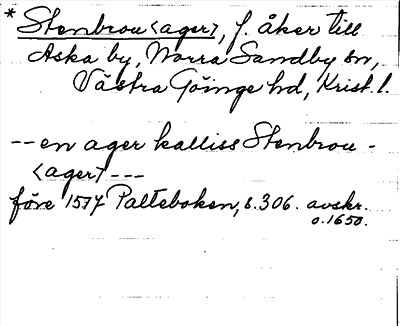 * Stenbrou <ager>, f. åker till
Aska by, Norra Sandby sn,
Västra Göinge hd, Krist. l.
-- en ager kalliss Stenbrou -
<ager> ---
före 1577 Palteboken, s. 306. avskr.
o. 1650.